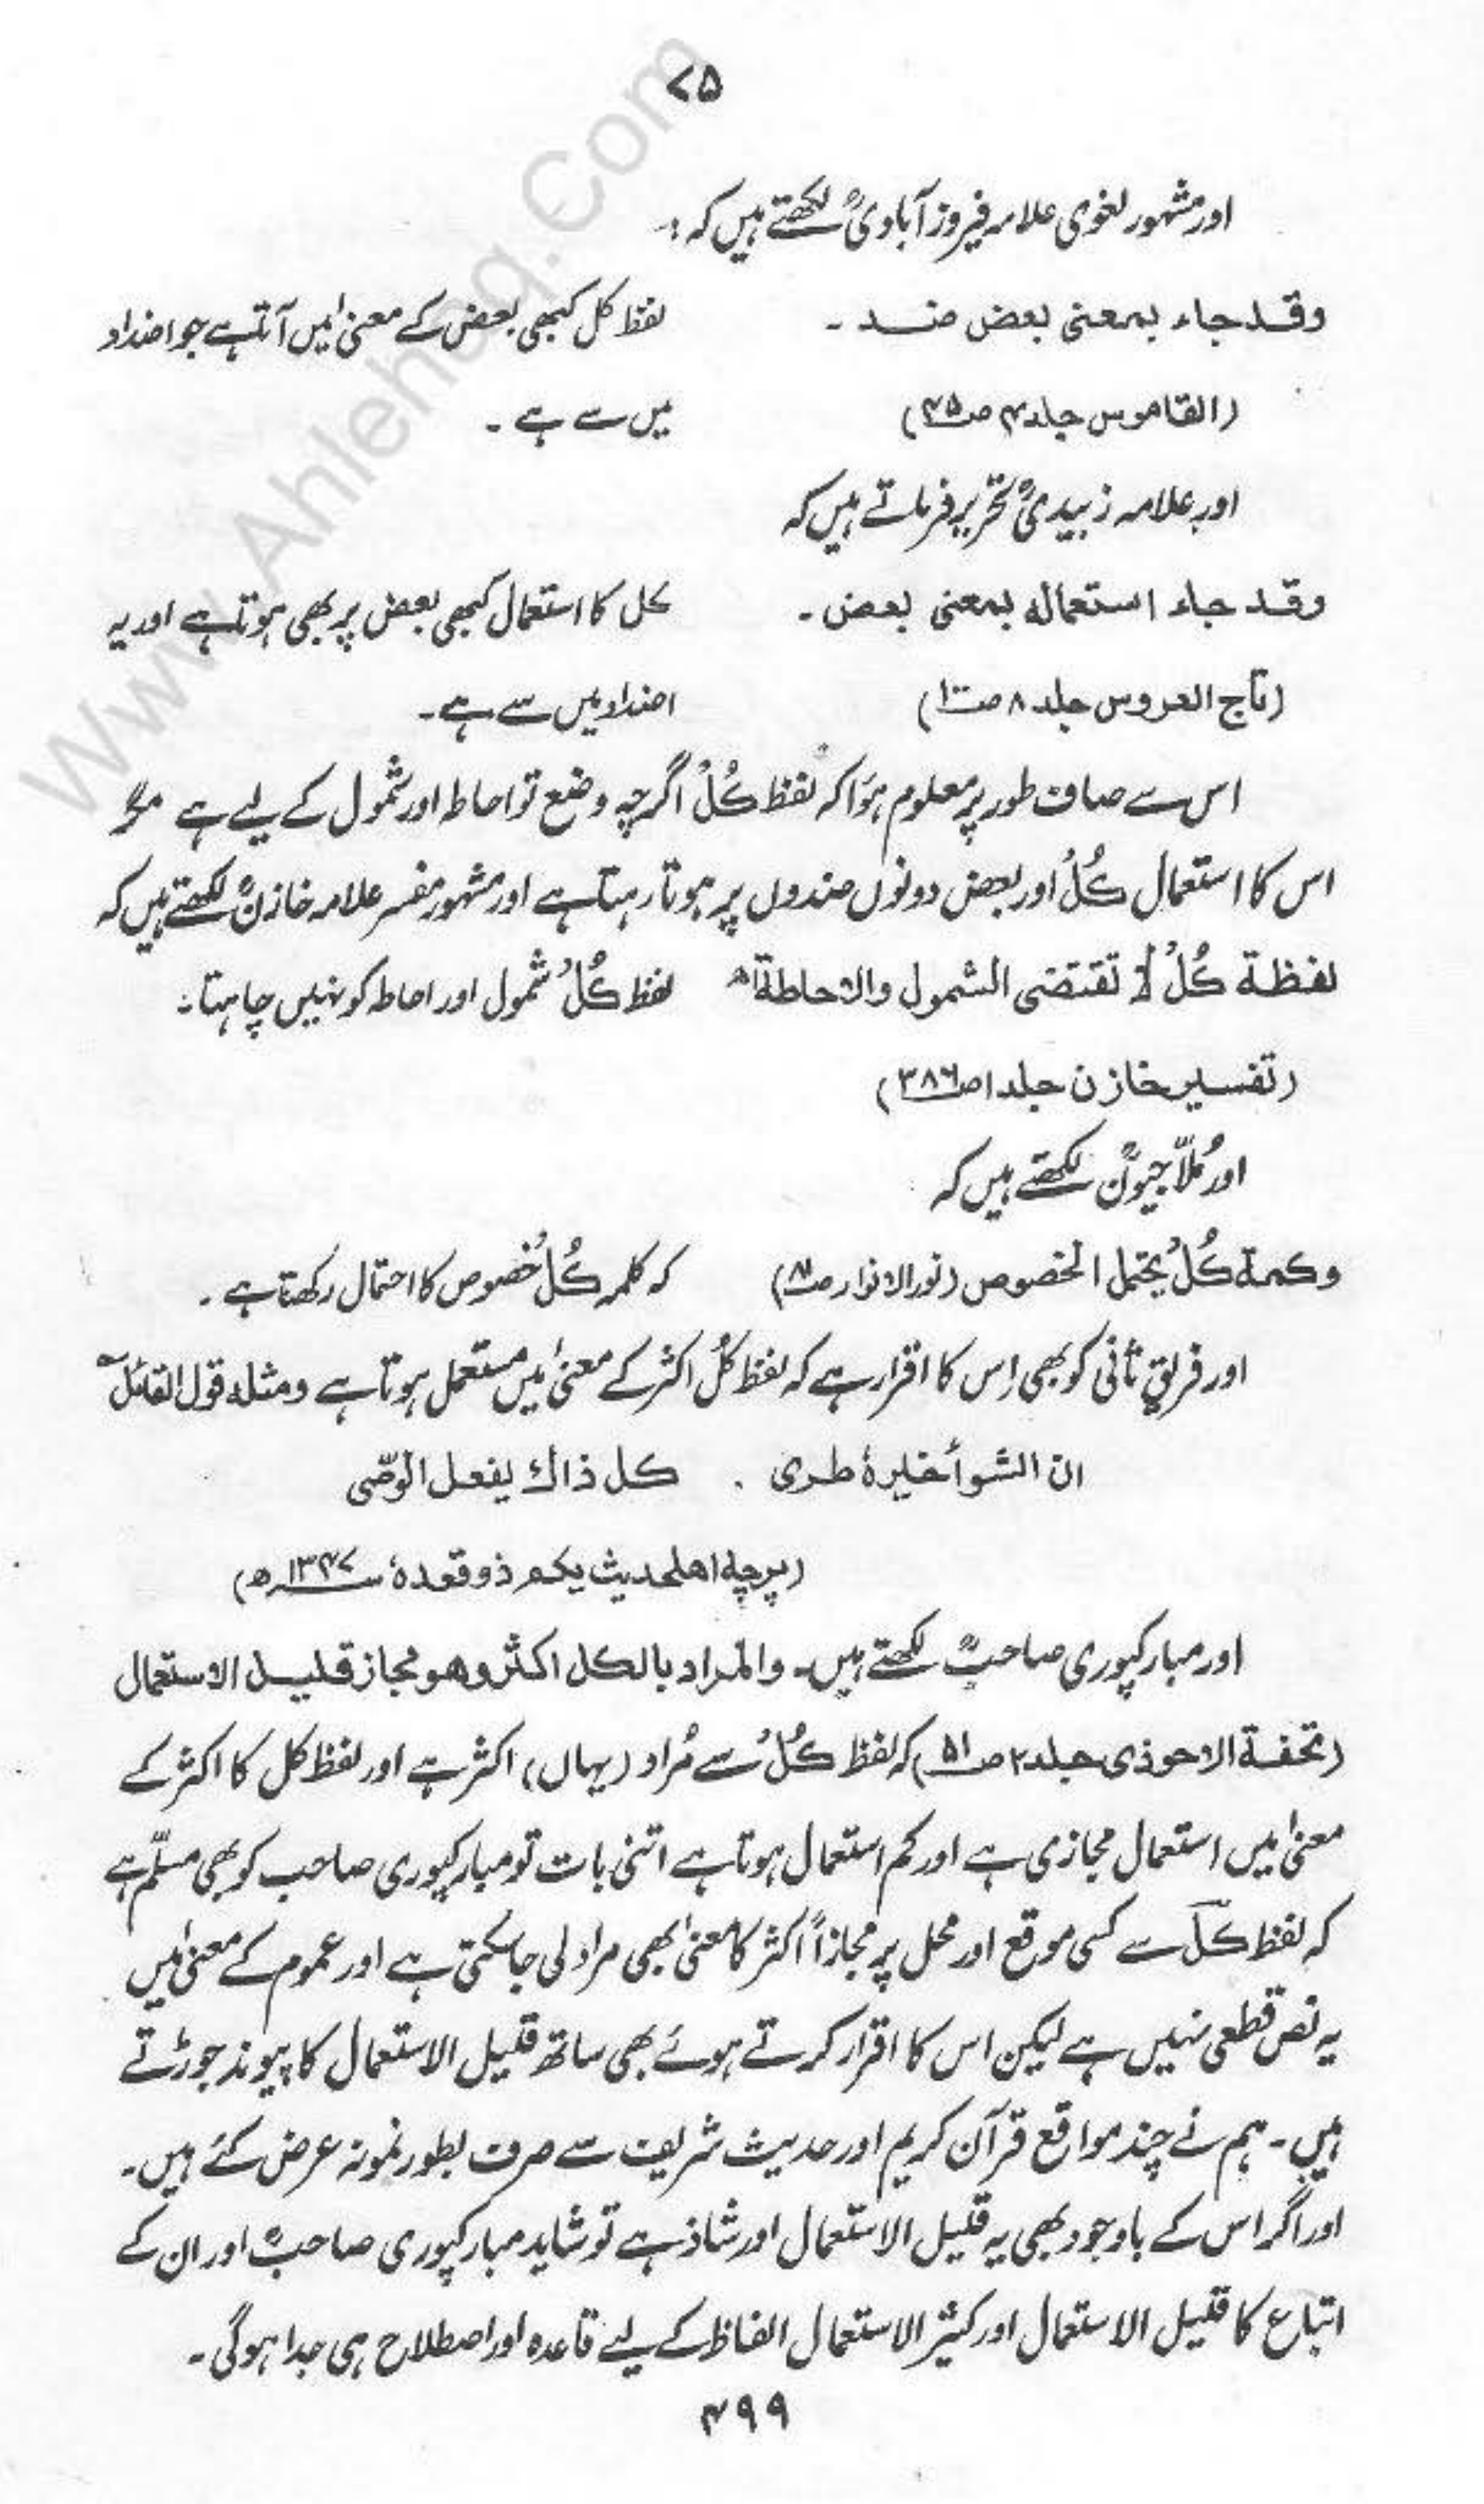 ۷۵
اور مشہور لغوی علامہ فیروز آبادیؒ لکھتے ہیں کہ :۔
وقد جاء بمعنی بعض ضد ۔ لفظ کل کبھی بعض کے معنیٰ میں آتا ہے جو اضداد
(القاموس جلد ۴ ص۴۵) میں سے ہے ۔
اور علامہ زبیدیؒ تحریر فرماتے ہیں کہ
وقد جاء استعمالہ بمعنی بعض ۔ کل کا استعمال کبھی بعض پر بھی ہوتا ہے اور یہ
(تاج العروس جلد ۸ ص۱۰۰) اضداد میں سے ہے ۔
اس سے صاف طور پر معلوم ہؤا کہ لفظ کُلُّ اگرچہ وضع تو احاطہ اور شمول کے لیے ہے مگر
اس کا استعمال کُلُّ اور بعض دونوں ضدوں پر ہوتا رہتا ہے اور مشہور مفسر علامہ خازنؒ لکھتے ہیں کہ
لفظة کُلُّ لا تقتضی الشمول والاحاطة اھ لفظ کُلُّ شمول اور احاطہ کو نہیں چاہتا ۔
(تفسیر خازن جلد ۱ ص۳۸۶)
اور مُلّا جیونؒ لکھتے ہیں کہ
وکلمة کُلُّ یحتمل الخصوص (نور الانوار ص) کہ کلمہ کُلُّ خصوص کا احتمال رکھتا ہے ۔
اور فریقِ ثانی کو بھی اس کا اقرار ہے کہ لفظ کُل اکثر کے معنیٰ میں مستعمل ہوتا ہے ومثلہ قول القائل
ان الشوأ خلیرۂ طری . کل ذاك یفعل الوصّی
(پرچہ اھلحدیث یکم ذوقعدۂ سنہ ۱۳۴۷ھ)
اور مبارکپوری صاحبؒ لکھتے ہیں۔ والمراد بالکل اکثر وھو مجاز قلیل الاستعمال
(تحفة الاحوذی جلد ۲ ص۵۱) کہ لفظ کُلُّ سے مُراد (یہاں) اکثر ہے اور لفظ کل کا اکثر کے
معنیٰ میں استعمال مجازی ہے اور کم استعمال ہوتا ہے اتنی بات تو مبارکپوری صاحب کو بھی مسلّم ہے
کہ لفظ کلّ سے کسی موقع اور محل پر مجازاً اکثر کا معنیٰ بھی مراد لی جاسکتی ہے اور عموم کے معنیٰ میں
یہ نص قطعی نہیں ہے لیکن اس کا اقرار کرتے ہوئے بھی ساتھ قلیل الاستعمال کا پیوند جوڑتے
ہیں ۔ ہم نے چند مواقع قرآن کریم اور حدیث شریف سے صرف بطور نمونہ عرض کئے ہیں ۔
اور اگر اس کے باوجود بھی یہ قلیل الاستعمال اور شاذ ہے تو شاید مبارکپوری صاحبؒ اور ان کے
اتباع کا قلیل الاستعمال اور کثیر الاستعمال الفاظ کے لیے قاعدہ اور اصطلاح ہی جدا ہوگی ۔
۴۹۹
www.Ahlehaq.Com